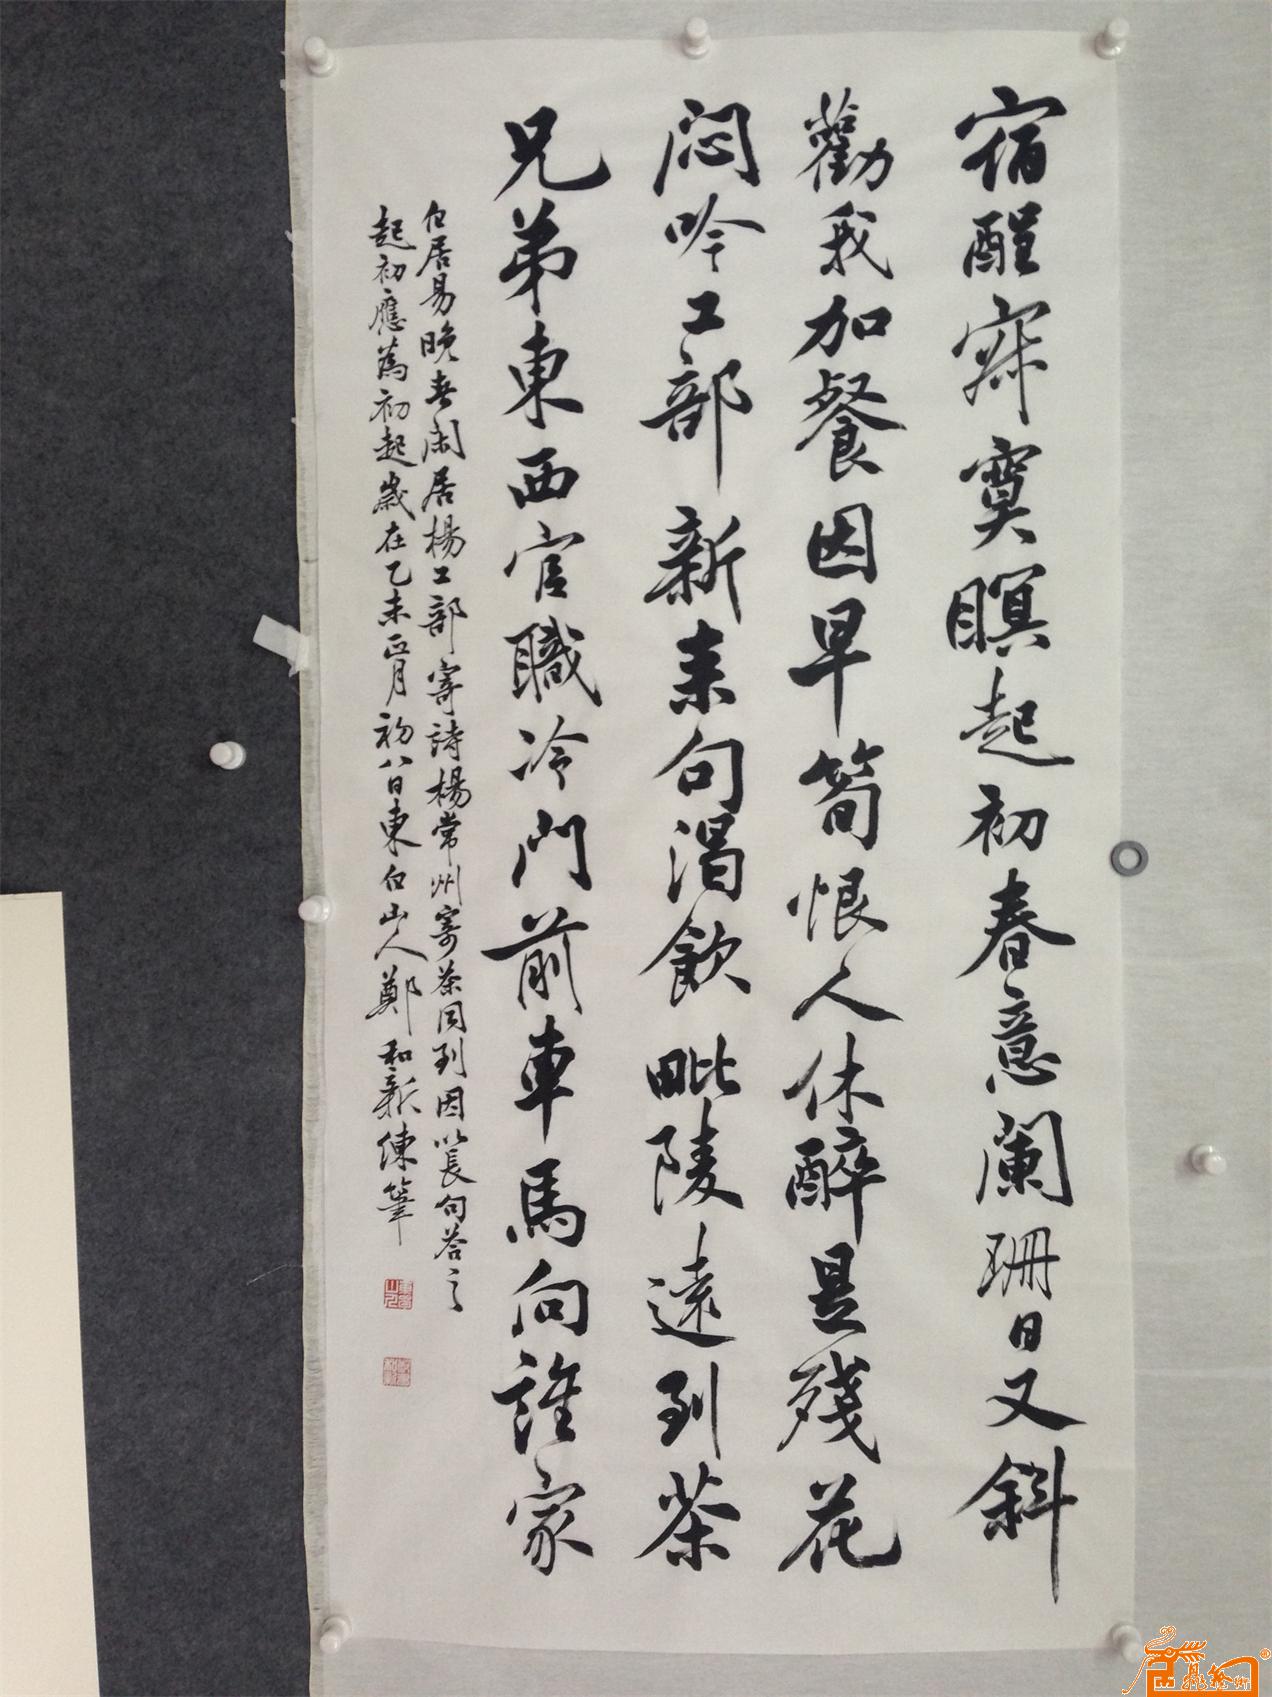 宿酲寂寞瞑起初春意闌珊日又斜
勸我加餐因早筍恨人休醉是殘花
闷吟工部新来句渴飲毗陵遠到茶
兄弟東西官職冷門前車馬向誰家
白居易晚春闲居楊工部寄詩楊常州寄茶同到因以長句答之
起初應為初起歲在乙未正月初八日東白山人鄭和新陳筆